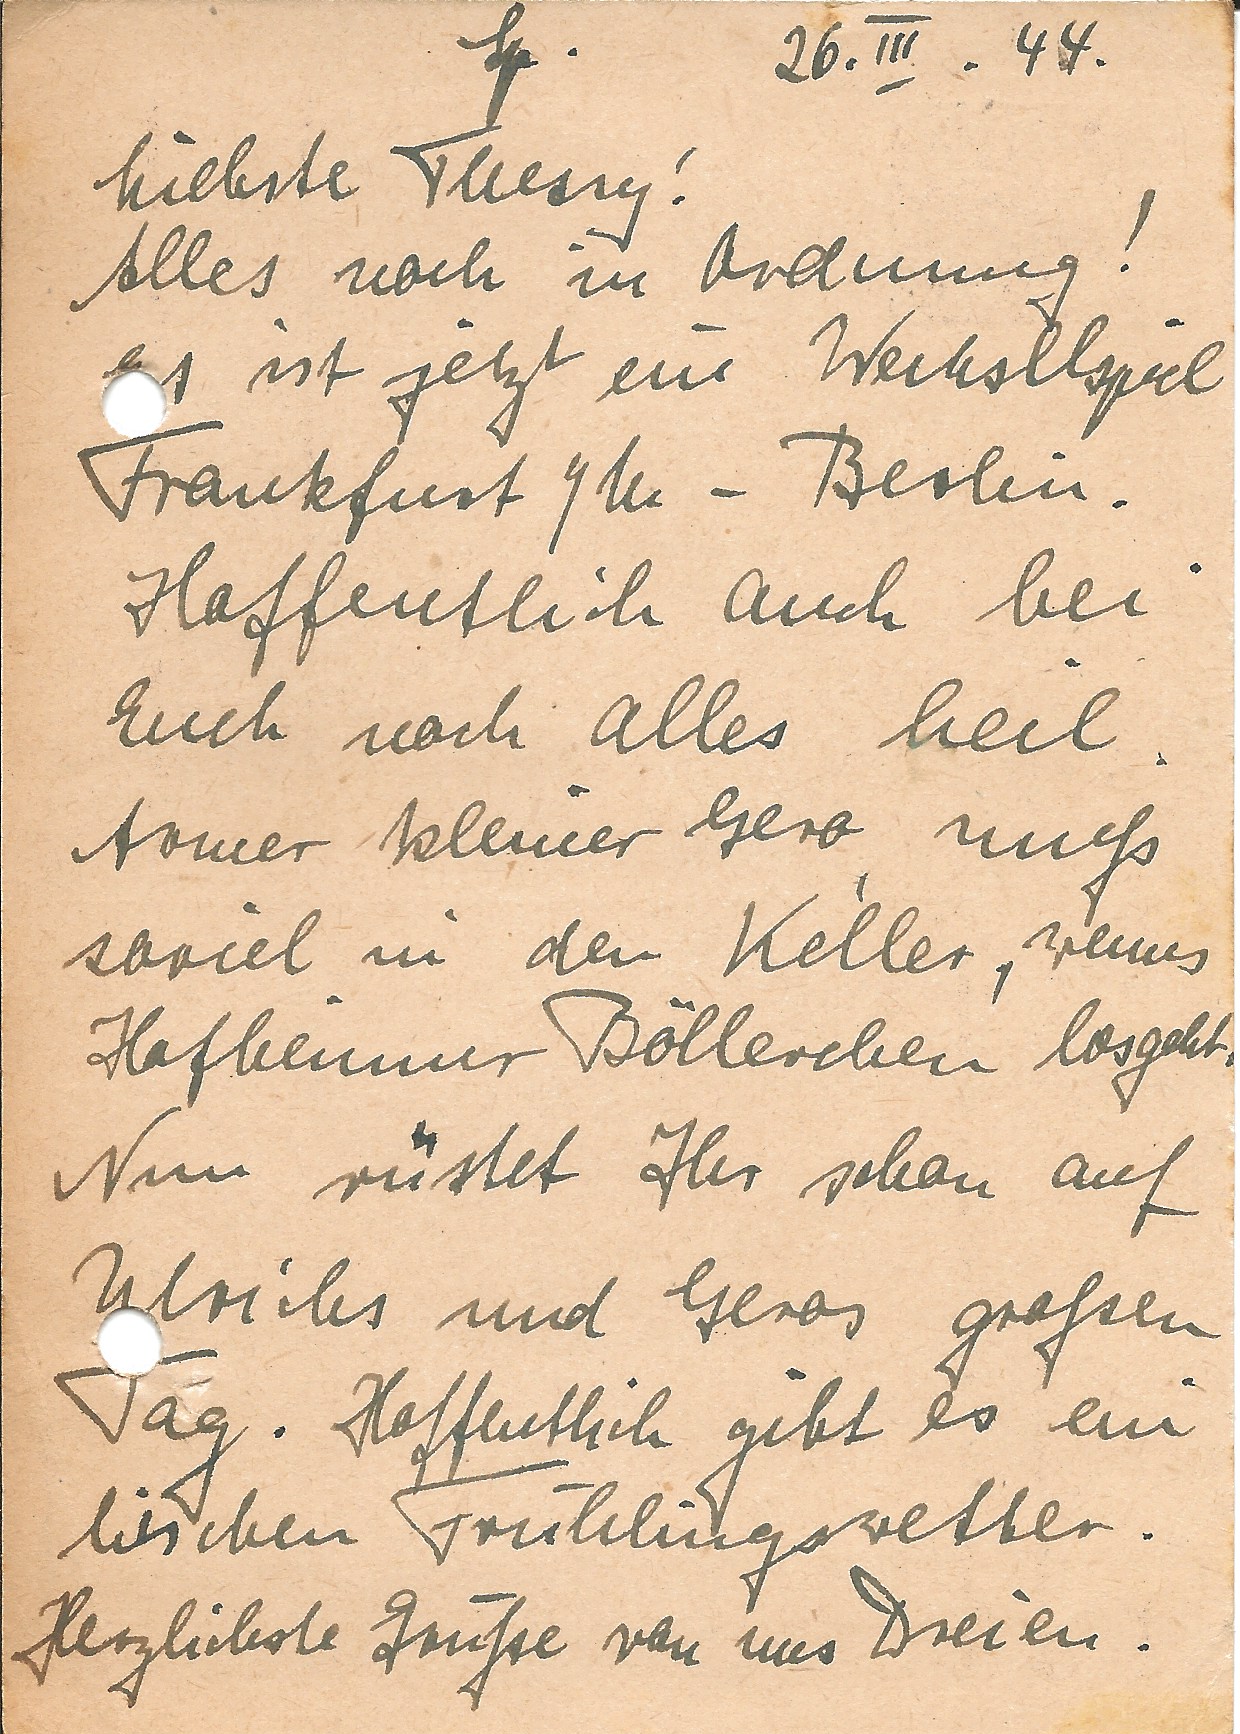 26. III. 44.
Liebste Thesry!
Alles noch in Ordnung!
Es ist jetzt ein Wechsellspiel
Frankfurt a/M – Berlin.
Hoffentlich auch bei
Euch noch alles heil.
Armer kleiner Gero, muß
soviel in den Keller, wenns
Hofheimer Böllerchen losgeht.
Nun rüstet Ihr schon auf
Ulrichs und Geros großen
Tag. Hoffentlich gibt es ein
bischen Frühlingswetter.
Herzlichste Grüße von uns Dreien.